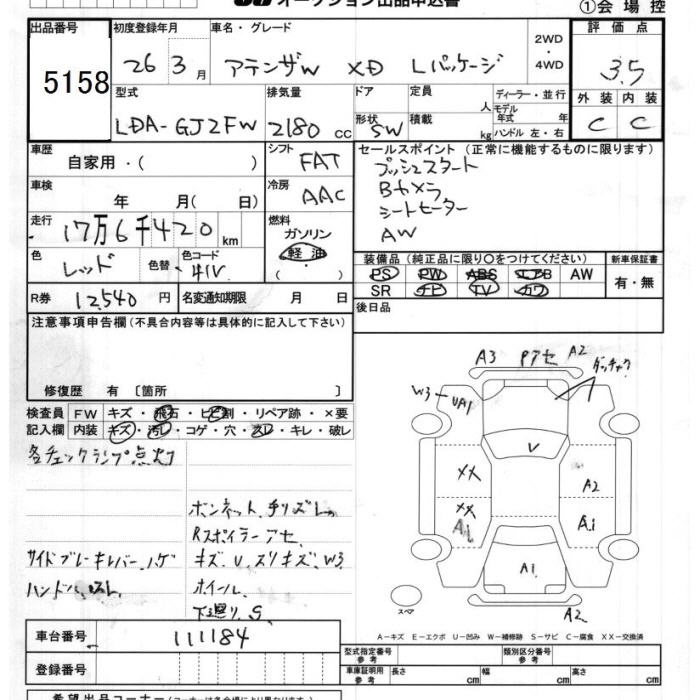 オークション出品申込書
①会場控
出品番号
5158
初度登録年月
26 3月
車名・グレード
アテンザW XD Lパッケージ
2WD
・
4WD
評価点
3.5
型式
LDA-GJ2FW
排気量
2180cc
ドア
形状
SW
定員
人
積載
kg
ディーラー・並行
モデル年式 年
ハンドル 左・右
外装
内装
C
C
車歴
自家用・( )
シフト
FAT
車検
年 月( 日)
冷房
AAC
走行
17万6千420km
燃料
ガソリン
軽油
( )
色
レッド
色替
色コード
41V
R券
12,540円
名変通知期限
月 日
セールスポイント(正常に機能するものに限ります)
プッシュスタート
Bカメラ
シートヒーター
AW
装備品(純正品に限り○をつけてください)
PS PW ABS エアB AW
SR ナビ TV カワ
新車保証書
有・無
後日品
注意事項申告欄(不具合内容等は具体的に記入して下さい)
修復歴 有 〔箇所 〕
検査員記入欄
FW キズ・飛石・ヒビ割・リペア跡・×要
内装 キズ・汚れ・コゲ・穴・スレ・キレ・破レ
各チェックランプ点灯
ボンネット、チリズレ
Rスポイラーアセ
サイドブレーキレバー、ハゲ
キズ、U、スリキズ、W3
ハンドル、スレ
ホイール
下廻り、S
A3
アセ
A2
W3
UA1
V
XX
XX
A1
A2
A1
A1
A2
スペア
A－キズ E－エクボ U－凹み W－補修跡 S－サビ C－腐食 XX－交換済
車台番号
111184
登録番号
型式指定番号
参考
類別区分番号
参考
車庫証明用
参考
長さ cm
幅 cm
高さ cm
希望出品コーナー